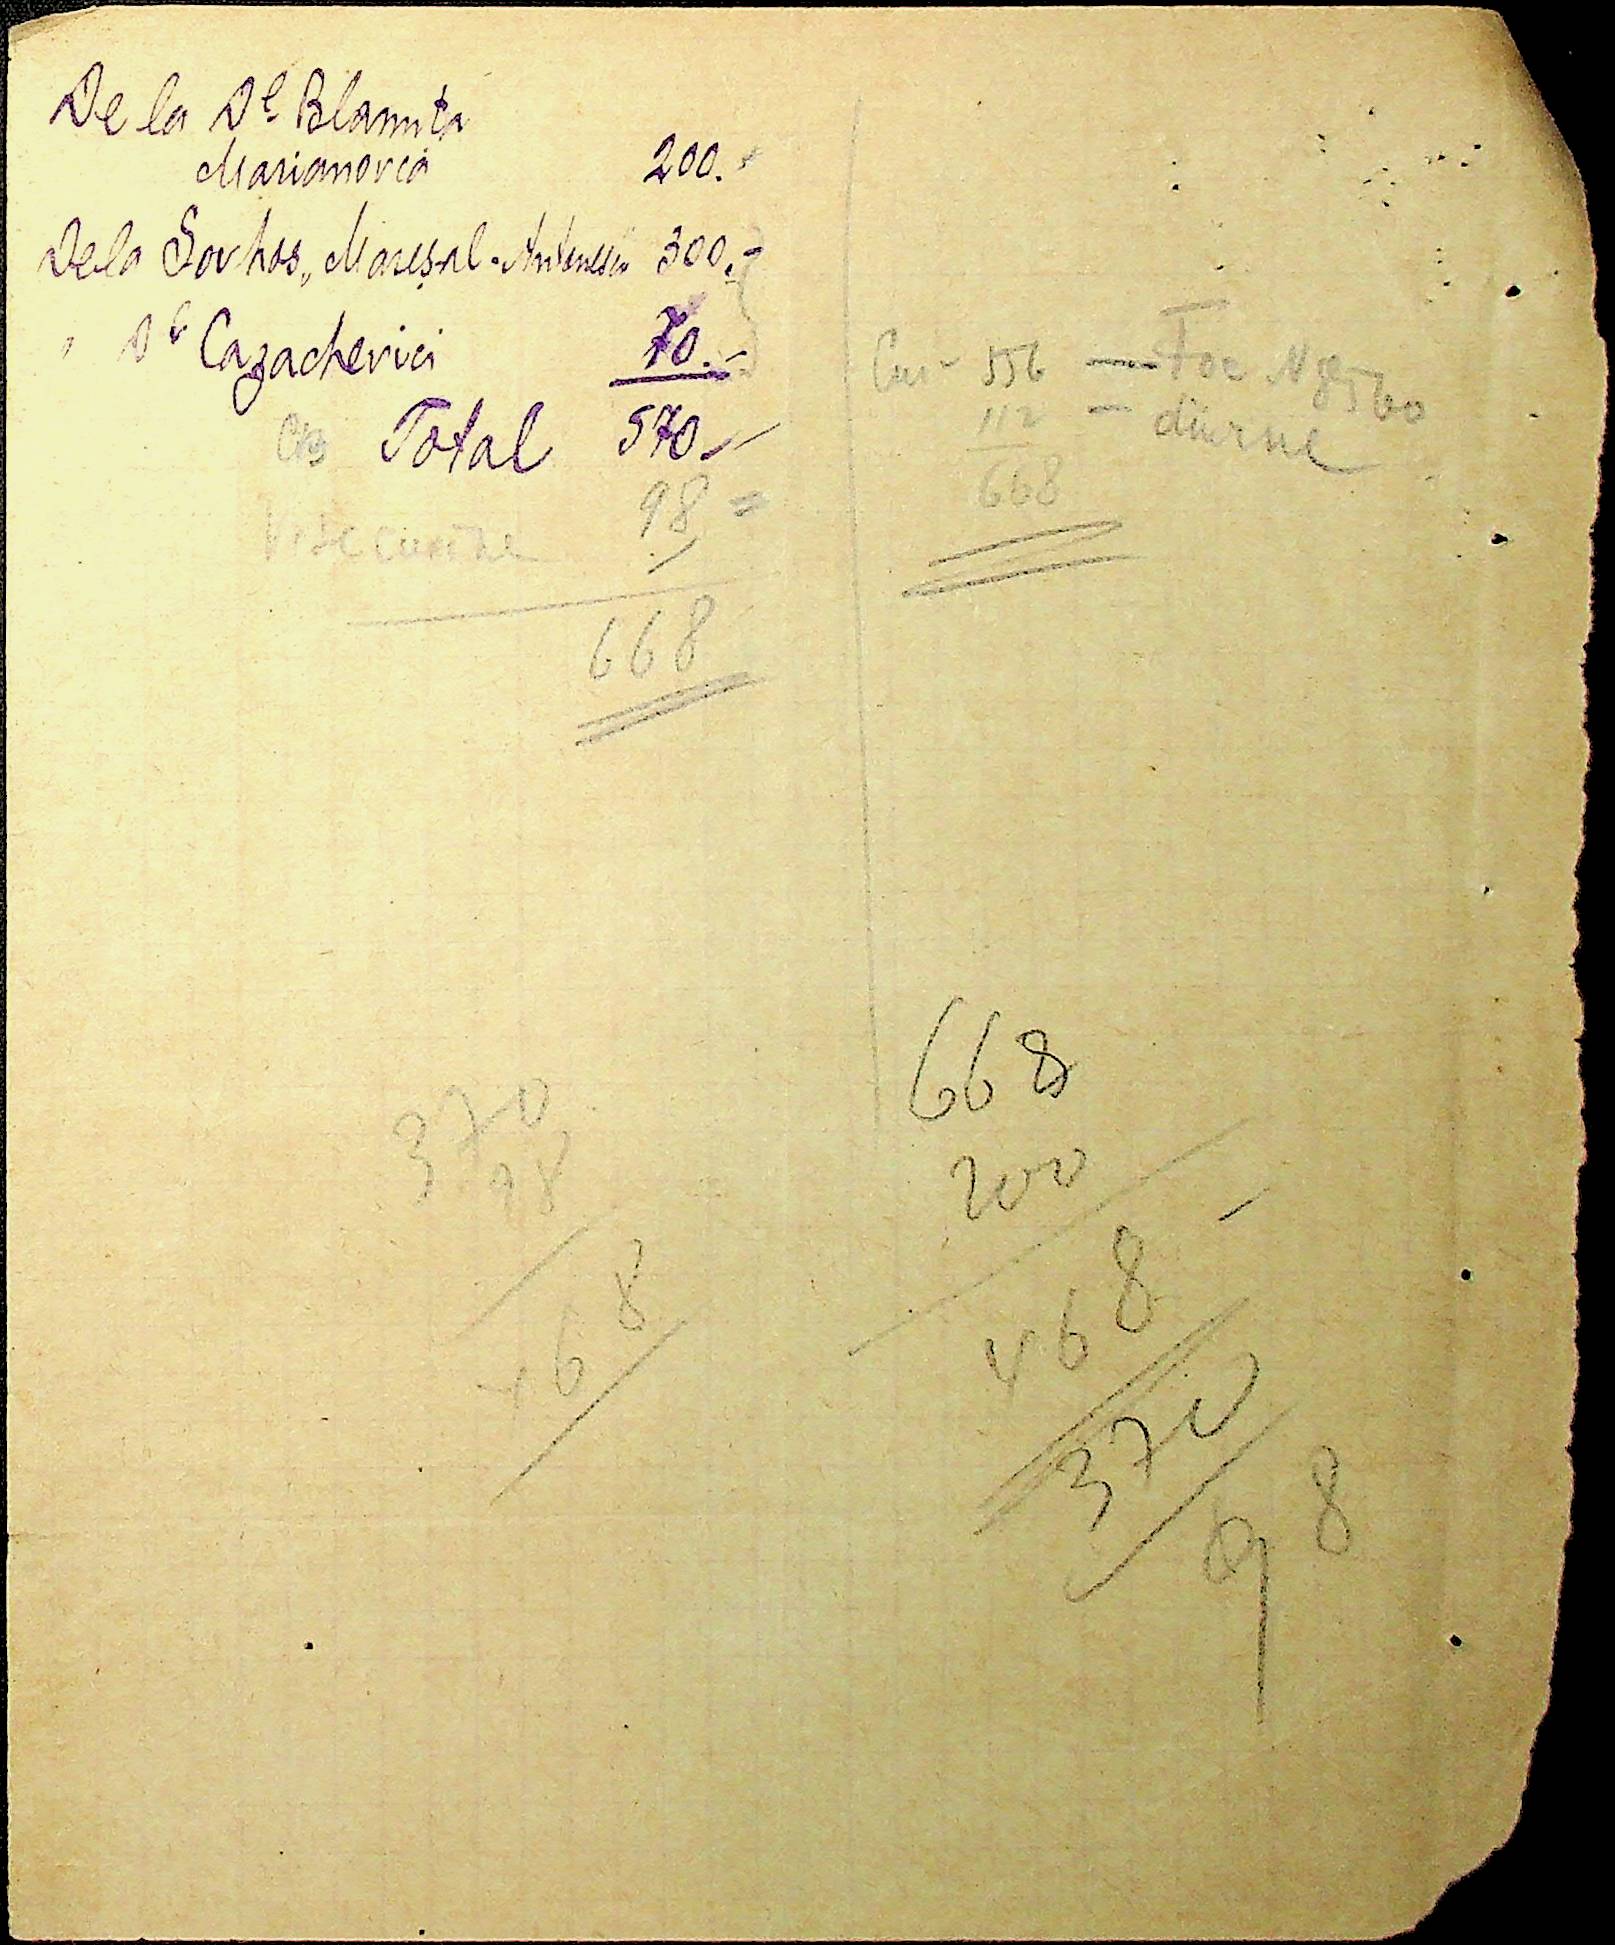 De la Dl Blamita
Marianovca 200.-
De la Sovhos „Mareşal-Antonescu 300.-
" Dl Cazacherici 70.-
Total 570.-
98 =
668
556 — Fac N 8560
112 — diurne
668
370
98
468
668
200
468
370
98